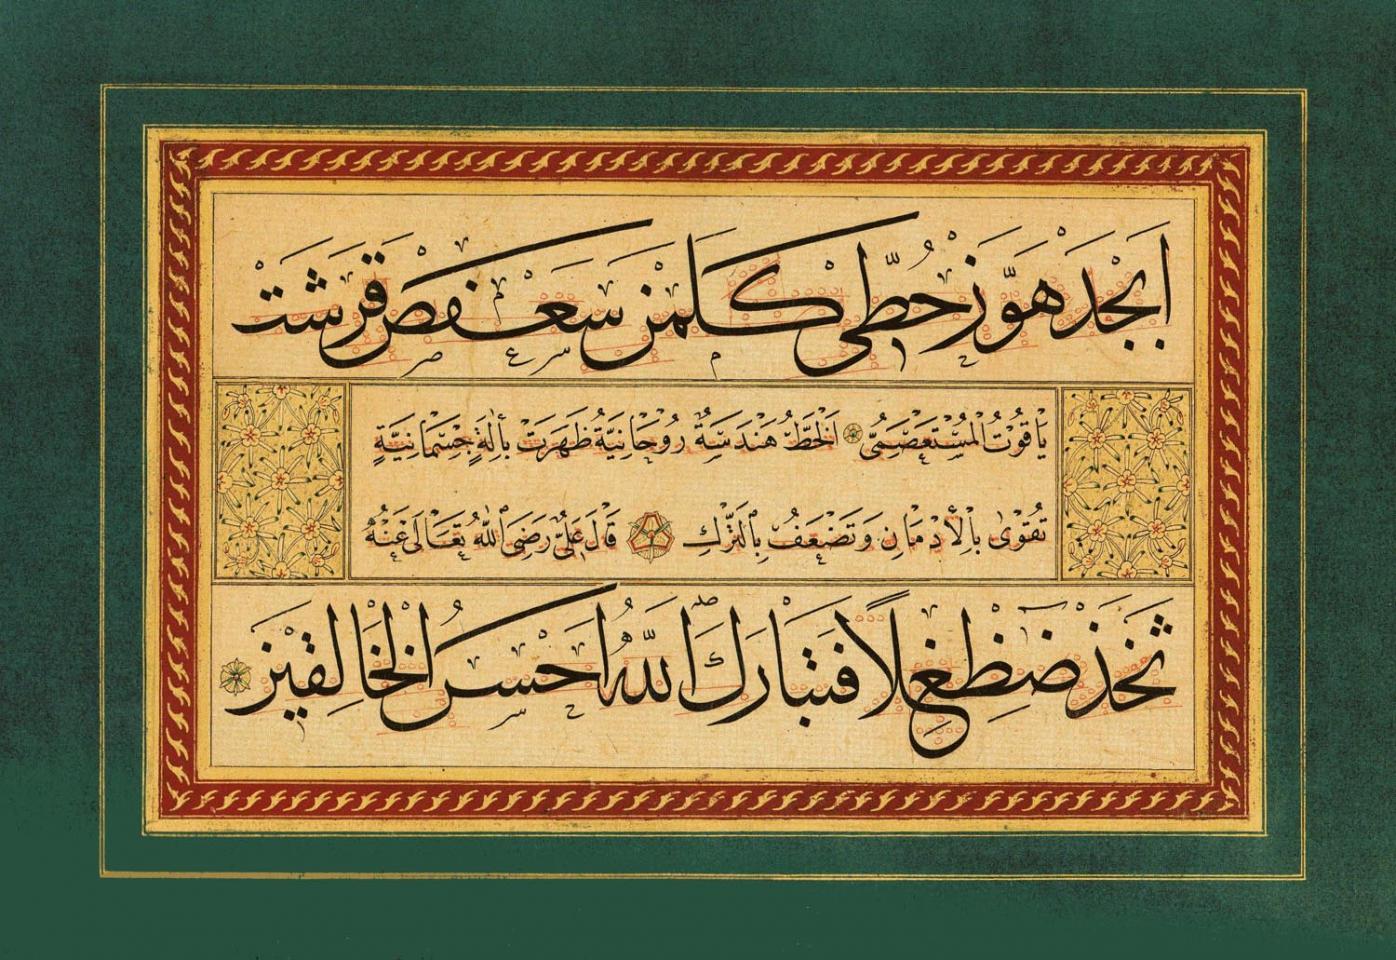 اَبْجَدْ هَوَّزْ حُطِّى كَلَمَنْ سَعْفَصْ قَرَشَتْ
يَاقُوتُ الْمُسْتَعْصَمِىُّ اَلْخَطُّ هَنْدَسَةٌ رُوْحَانِيَّةٌ ظَهَرَتْ بِاٰلَةٍ جِسْمَانِيَّةٍ
تَقْوٰى بِالْاِدْمَانِ وَتَضْعَفُ بِالتَّرْكِ قَالَ عَلِىٌّ رَضِىَ اللّٰهُ تَعَالٰى عَنْهُ
ثَخَذْ ضَظَغْلًا فَتَبَارَكَ اللّٰهُ اَحْسَنُ الْخَالِقِيْنَ